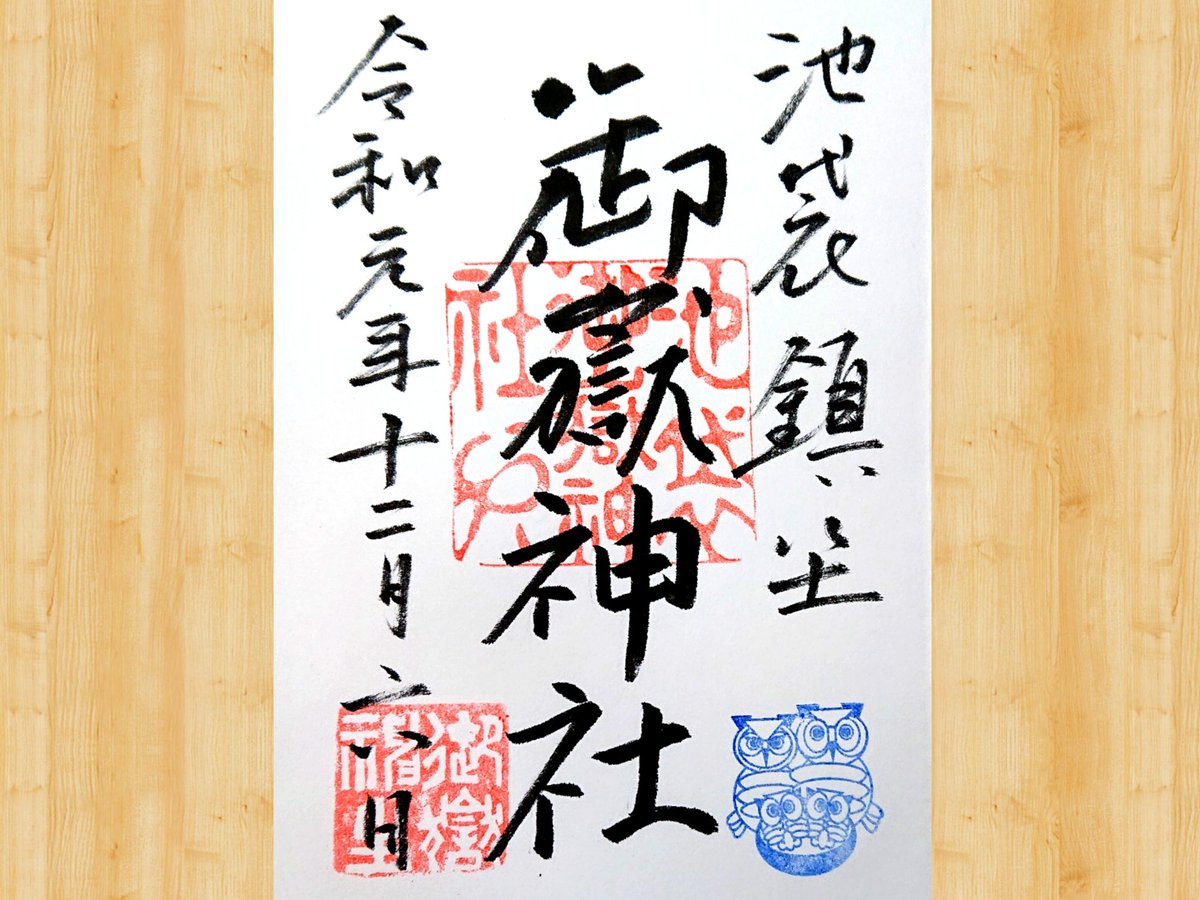 池袋鎮坐
御嶽神社
令和元年十二月六日
池袋
御嶽神
社印